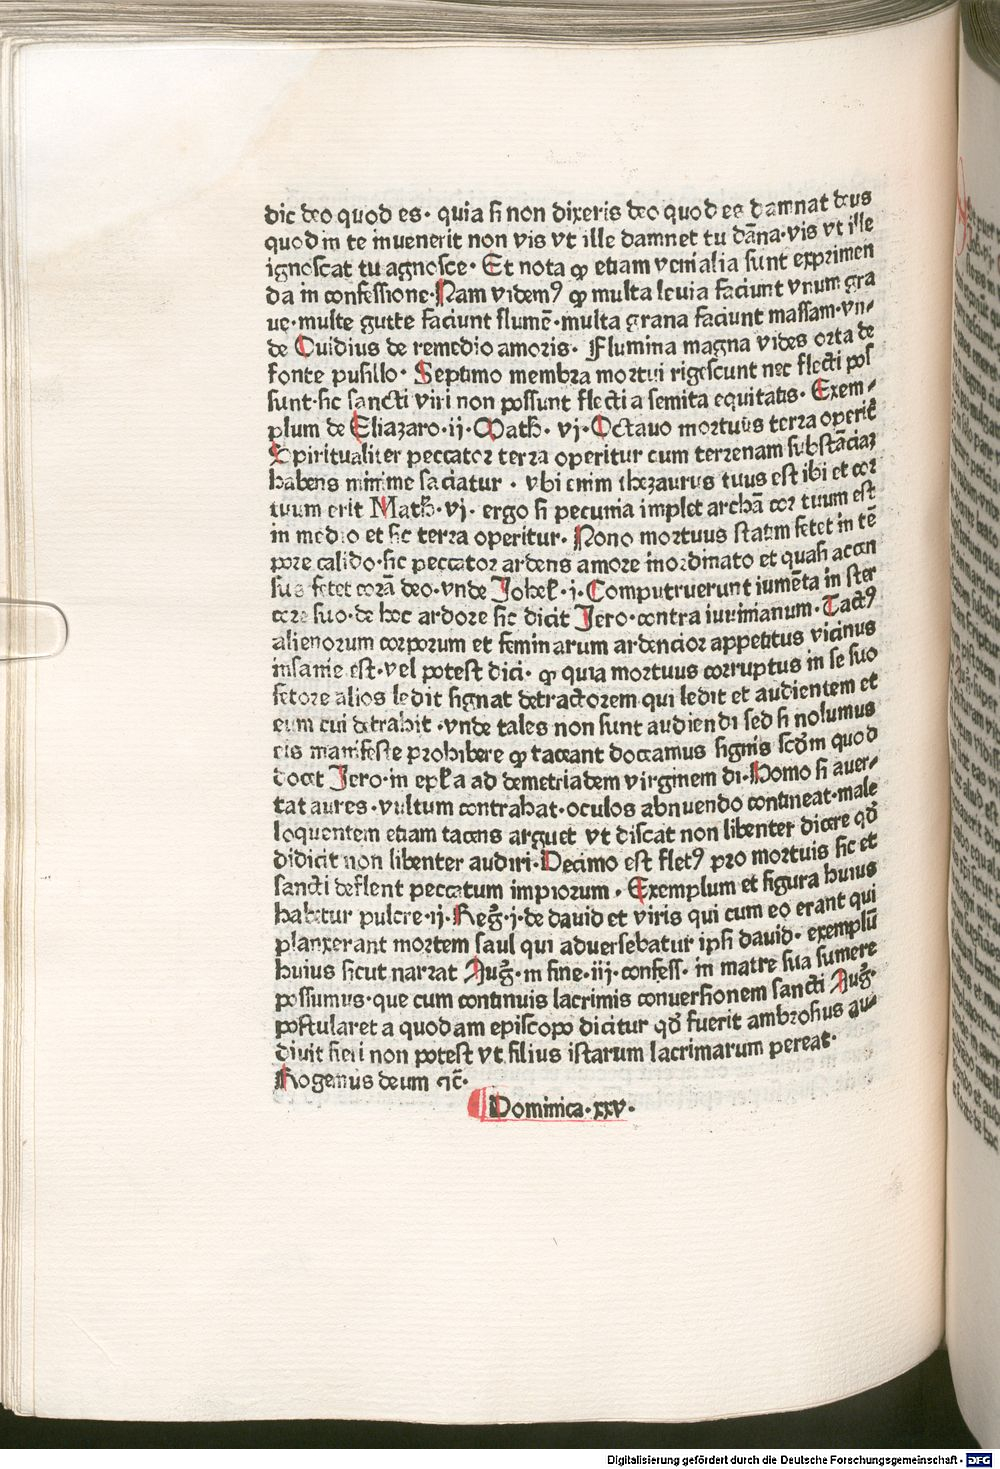 dic deo quod es· quia si non dixeris deo quod es damnat deus
quod in te inuenerit non vis vt ille damnet tu dāna·vis vt ille
ignoscat tu agnosce· Et nota ꝙ etiam venialia sunt exprimen
da in confessione·Nam videmꝰ ꝙ multa leuia faciunt vnum gra
ue·multe gutte faciunt flumē·multa grana faciunt massam·vn⸗
de Ouidius de remedio amoris· Flumina magna vides orta de
fonte pusillo· Septimo membra mortui rigescunt nec flecti pos
sunt·sic sancti viri non possunt flecti a semita equitatis· Exem⸗
plum de Eliazaro·ij·Math· vj·Octauo mortuus terra operit̄
Spiritualiter peccator terra operitur cum terrenam substāciaꝫ
habens minime saciatur · vbi enim thezaurus tuus est ibi et cor
tuum erit Math·vj· ergo si pecunia implet archā cor tuum est
in medio et sic terra operitur· Nono mortuus statim fetet in tē
pore calido·sic peccator ardens amore inordinato et quasi accen
sus fetet corā deo·vnde Johel·i·Computruerunt iumēta in ster
core suo·de hoc ardore sic dicit Jero·contra iuuinianum·Tactꝰ
alienorum corporum et feminarum ardencior appetitus vicinus
insanie est·vel potest dici· ꝙ quia mortuus corruptus in se suo
fetore alios ledit signat detractorem qui ledit et audientem et
eum cui detrahit ·vnde tales non sunt audiendi sed si nolumus
eis manifeste prohibere ꝙ taceant doceamus signis scd̄m quod
docet Jero·in epl̄a ad demetriadem virginem di·Homo si auer⸗
tat aures·vultum contrahat·oculos abnuendo contineat·male
loquentem etiam tacens arguet vt discat non libenter dicere qd̄
didicit non libenter audiri·Decimo est fletꝰ pro mortuis sic et
sancti deflent peccatum impiorum· Exemplum et figura huius
habetur pulcre·ij·Reg̃·j·de dauid et viris qui cum eo erant qui
planxerant mortem saul qui aduersebatur ipsi dauid· exemplū
huius sicut narrat Aug̃·in fine·iij·confess· in matre sua sumere
possumus·que cum continuis lacrimis conuersionem sancti Aug̃·
postularet a quodam episcopo dicitur qd̄ fuerit ambrosius au⸗
diuit fieri non potest vt filius istarum lacrimarum pereat·
Rogemus deum ⁊c̄·
Dominica·xxv·
Digitalisierung gefördert durch die Deutsche Forschungsgemeinschaft - DFG